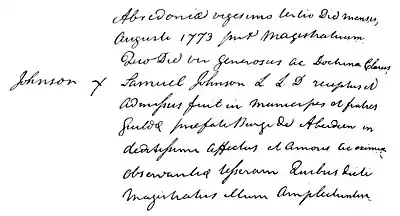 Abredoniæ vigesimo tertio Die mensis
Augusti 1773 pnt Magistratuum
Quo Die vir generosus ac Doctrina Clarus
Johnson x Samuel Johnson L L D receptus et
admissus fuit in municipes et fratres
guildæ præfate Burgi de Aberdeen in
deditissimi affectus et Amoris ac eximiæ
observantiæ tesseram Quibus dicti
Magistratus illum Amplectuntur